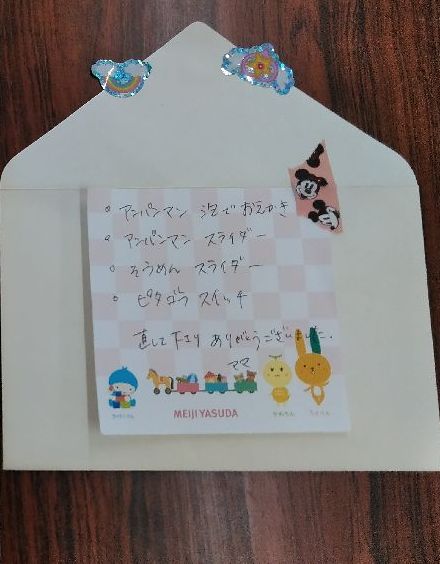 ・アンパンマン 泡でおえかき
・アンパンマン スライダー
・そうめん スライダー
・ピタゴラ スイッチ
直して下さり ありがとうございました。
ママ
MEIJI YASUDA